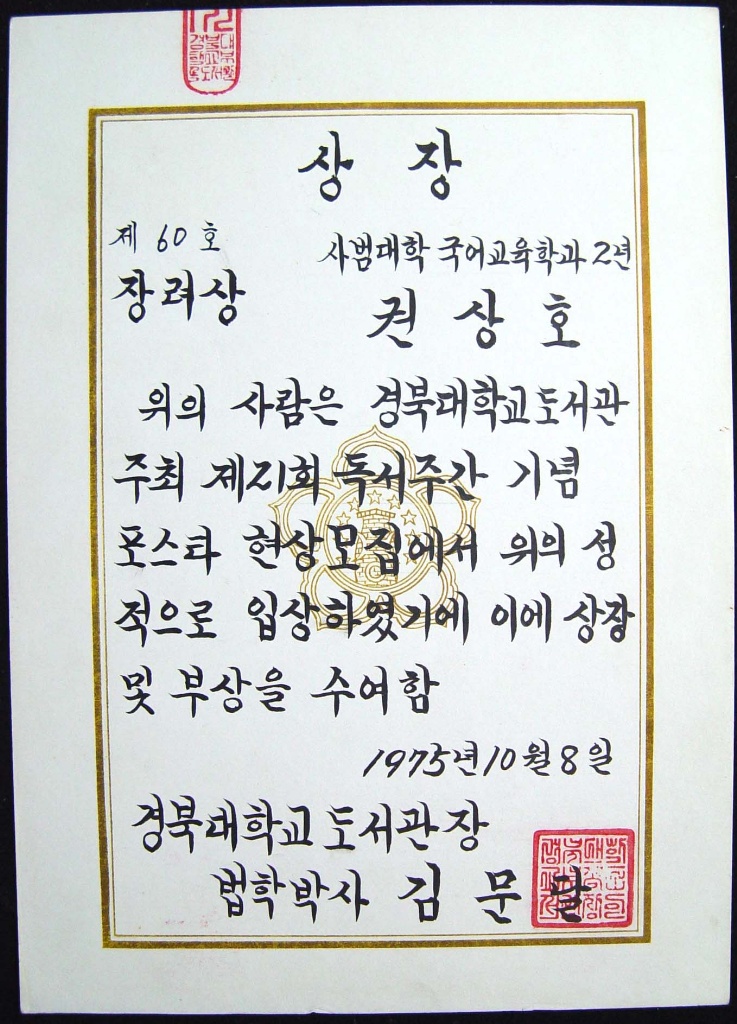 상 장
제 60 호
사범대학 국어교육학과 2년
장려상
권 상 호
위의 사람은 경북대학교도서관
주최 제21회 독서주간 기념
포스타 현상모집에서 위의 성
적으로 입상하였기에 이에 상장
및 부상을 수여함
1975년 10월 8일
경북대학교도서관장
법학박사 김 문 달